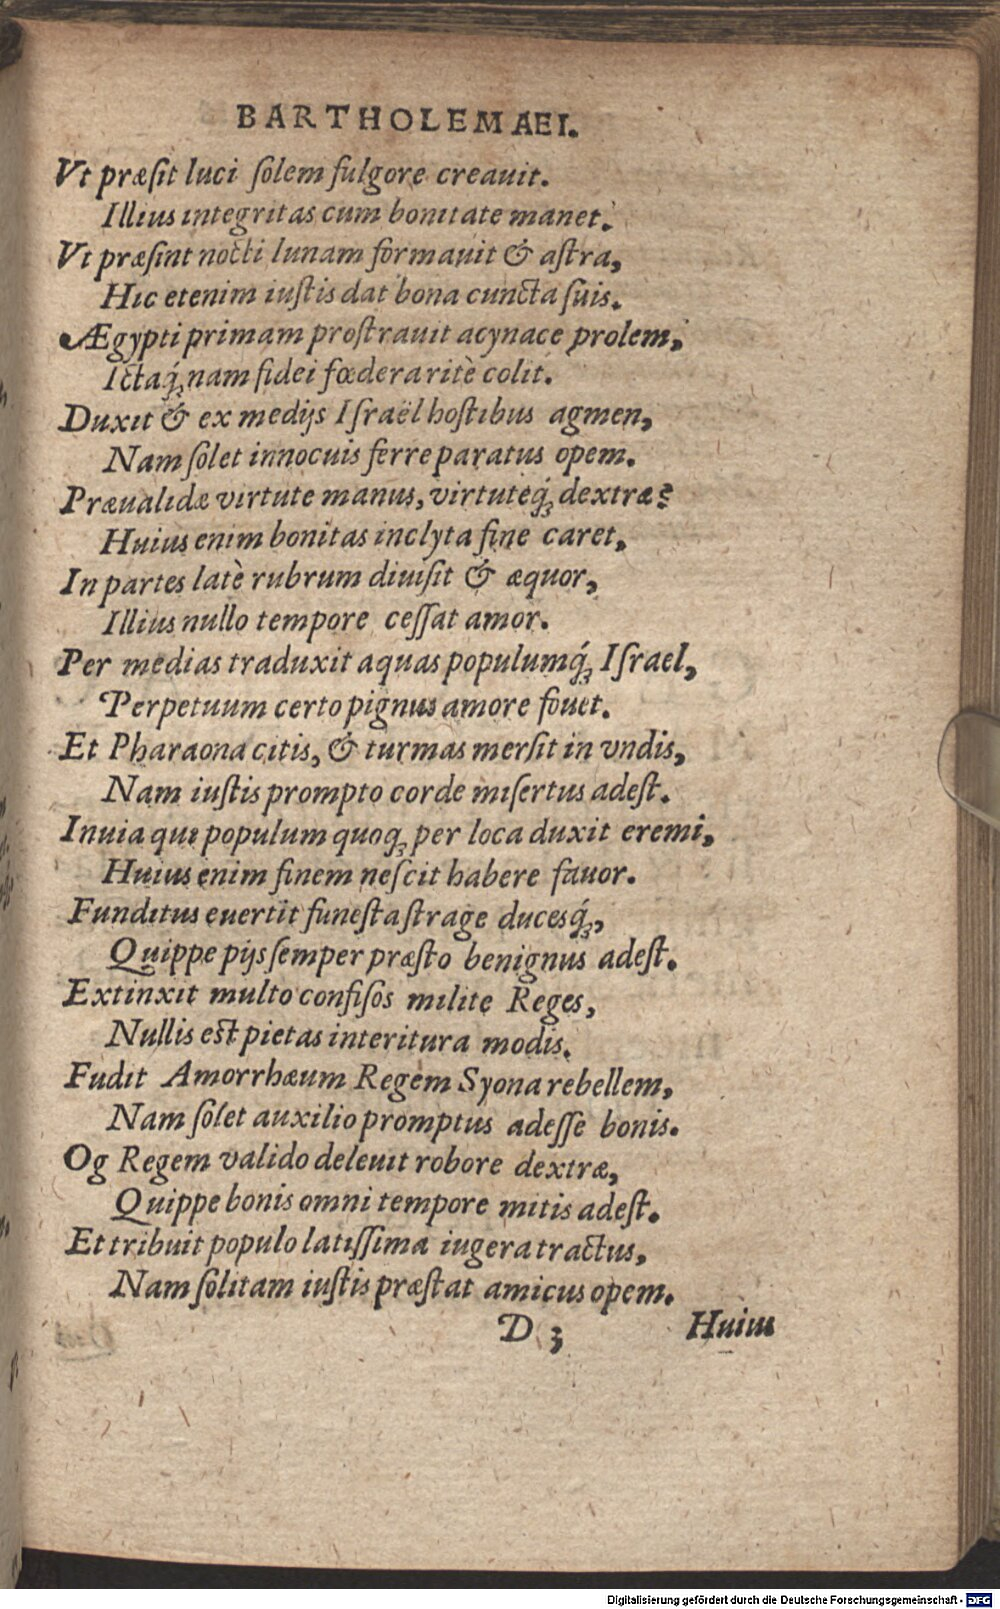 BARTHOLEMAEI.
Vt præsit luci solem fulgore creauit.
Illius integritas cum bonitate manet.
Vt præsint nocti lunam formauit & astra,
Hic etenim iustis dat bona cuncta suis.
Ægypti primam prostrauit acynace prolem,
Ictaq́ꝫ nam fidei fœdera ritè colit.
Duxit & ex medijs Israël hostibus agmen,
Nam solet innocuis ferre paratus opem.
Præualidæ virtute manus, virtuteq́ꝫ dextræ:
Huius enim bonitas inclyta fine caret,
In partes latè rubrum diuisit & æquor,
Illius nullo tempore cessat amor.
Per medias traduxit aquas populumq́ꝫ Israel,
Perpetuum certo pignus amore fouet.
Et Pharaona citis, & turmas mersit in vndis,
Nam iustis prompto corde misertus adest.
Inuia qui populum quoqꝫ per loca duxit eremi,
Huius enim finem nescit habere fauor.
Funditus euertit funesta strage ducesq́ꝫ,
Quippe pijs semper præsto benignus adest.
Extinxit multo confisos milite Reges,
Nullis est pietas interitura modis.
Fudit Amorrhæum Regem Syona rebellem,
Nam solet auxilio promptus adesse bonis.
Og Regem valido deleuit robore dextræ,
Quippe bonis omni tempore mitis adest.
Et tribuit populo latissima iugera tractus,
Nam solitam iustis præstat amicus opem.
D 3 Huius
Digitalisierung gefördert durch die Deutsche Forschungsgemeinschaft - DFG